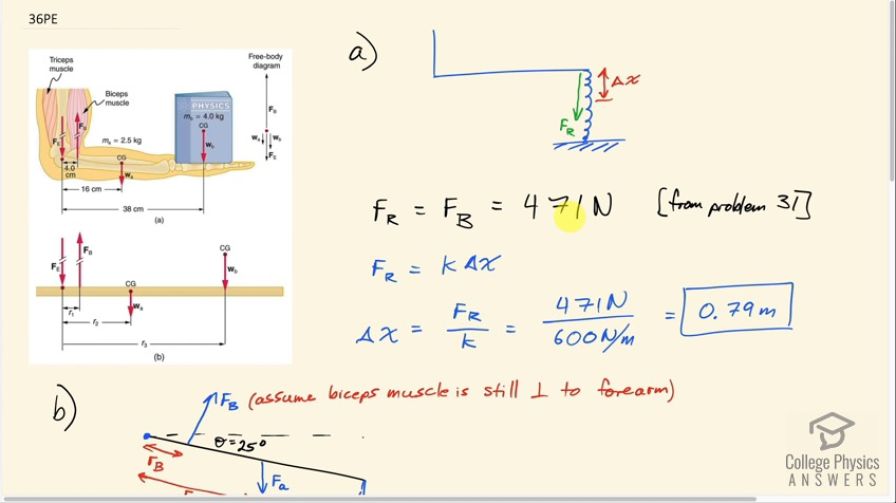 36PE
Triceps
muscle
Biceps
muscle
Free-body
diagram
PHYSICS
m_b = 4.0 kg
CG
w_b
F_B
w_a
w_b
F_E
F_E
F_B
m_a = 2.5 kg
CG
w_a
4.0
cm
16 cm
38 cm
(a)
F_E
F_B
CG
w_b
CG
w_a
r_1
r_2
r_3
(b)
a)
Δx
F_R
F_R = F_B = 471 N [from problem 31]
F_R = k Δx
Δx = F_R / k = 471 N / 600 N/m = 0.79 m
b)
F_B (assume biceps muscle is still ⊥ to forearm)
θ = 25°
r_B
F_a
College Physics
ANSWERS